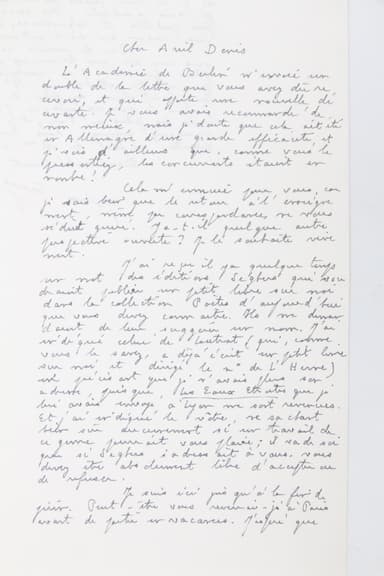 Cher Ami Denis
L'Académie de Berlin m'envoie un
double de la lettre que vous avez dû re-
cevoir, et qui apporte une nouvelle dé-
cevante. Je vous avais recommandé de
mon mieux, mais je doute que cela ait été
en Allemagne d'une grande efficacité et
je sais d'ailleurs que, comme vous le
pressentiez, les concurrents étaient en
nombre!
Cela m'ennuie pour vous, car
je sais bien que le retour à l'enseigne-
ment, même par correspondance, ne vous
séduit guère. Y a-t-il quelque autre
perspective ouverte? Je le souhaite vive-
ment.
J'ai reçu il y a quelque temps
un mot des éditions Seghers qui vou-
draient publier un petit livre sur moi
dans la collection Poètes d'aujourd'hui
que vous devez connaître. Ils me deman-
daient de leur suggérer un nom. J'ai
indiqué celui de (qui, comme
vous le savez, a déjà écrit un petit livre
sur moi et dirigé le n° de L'Herne)
en précisant que je n'avais plus son
adresse puisque, Les Eaux Etroites que je
lui avais envoyé à Lyon me sont revenues.
Et j'ai indiqué le vôtre, ne sachant
bien sûr aucunement si un travail de
ce genre pourrait vous plaire; il va de soi
que si Seghers s'adressait à vous, vous
devez être absolument libre d'accepter ou
de refuser.
Je suis ici jusqu'à la fin de
juin. Peut-être vous reverrai-je à Paris
avant de partir en vacances. J'espère que